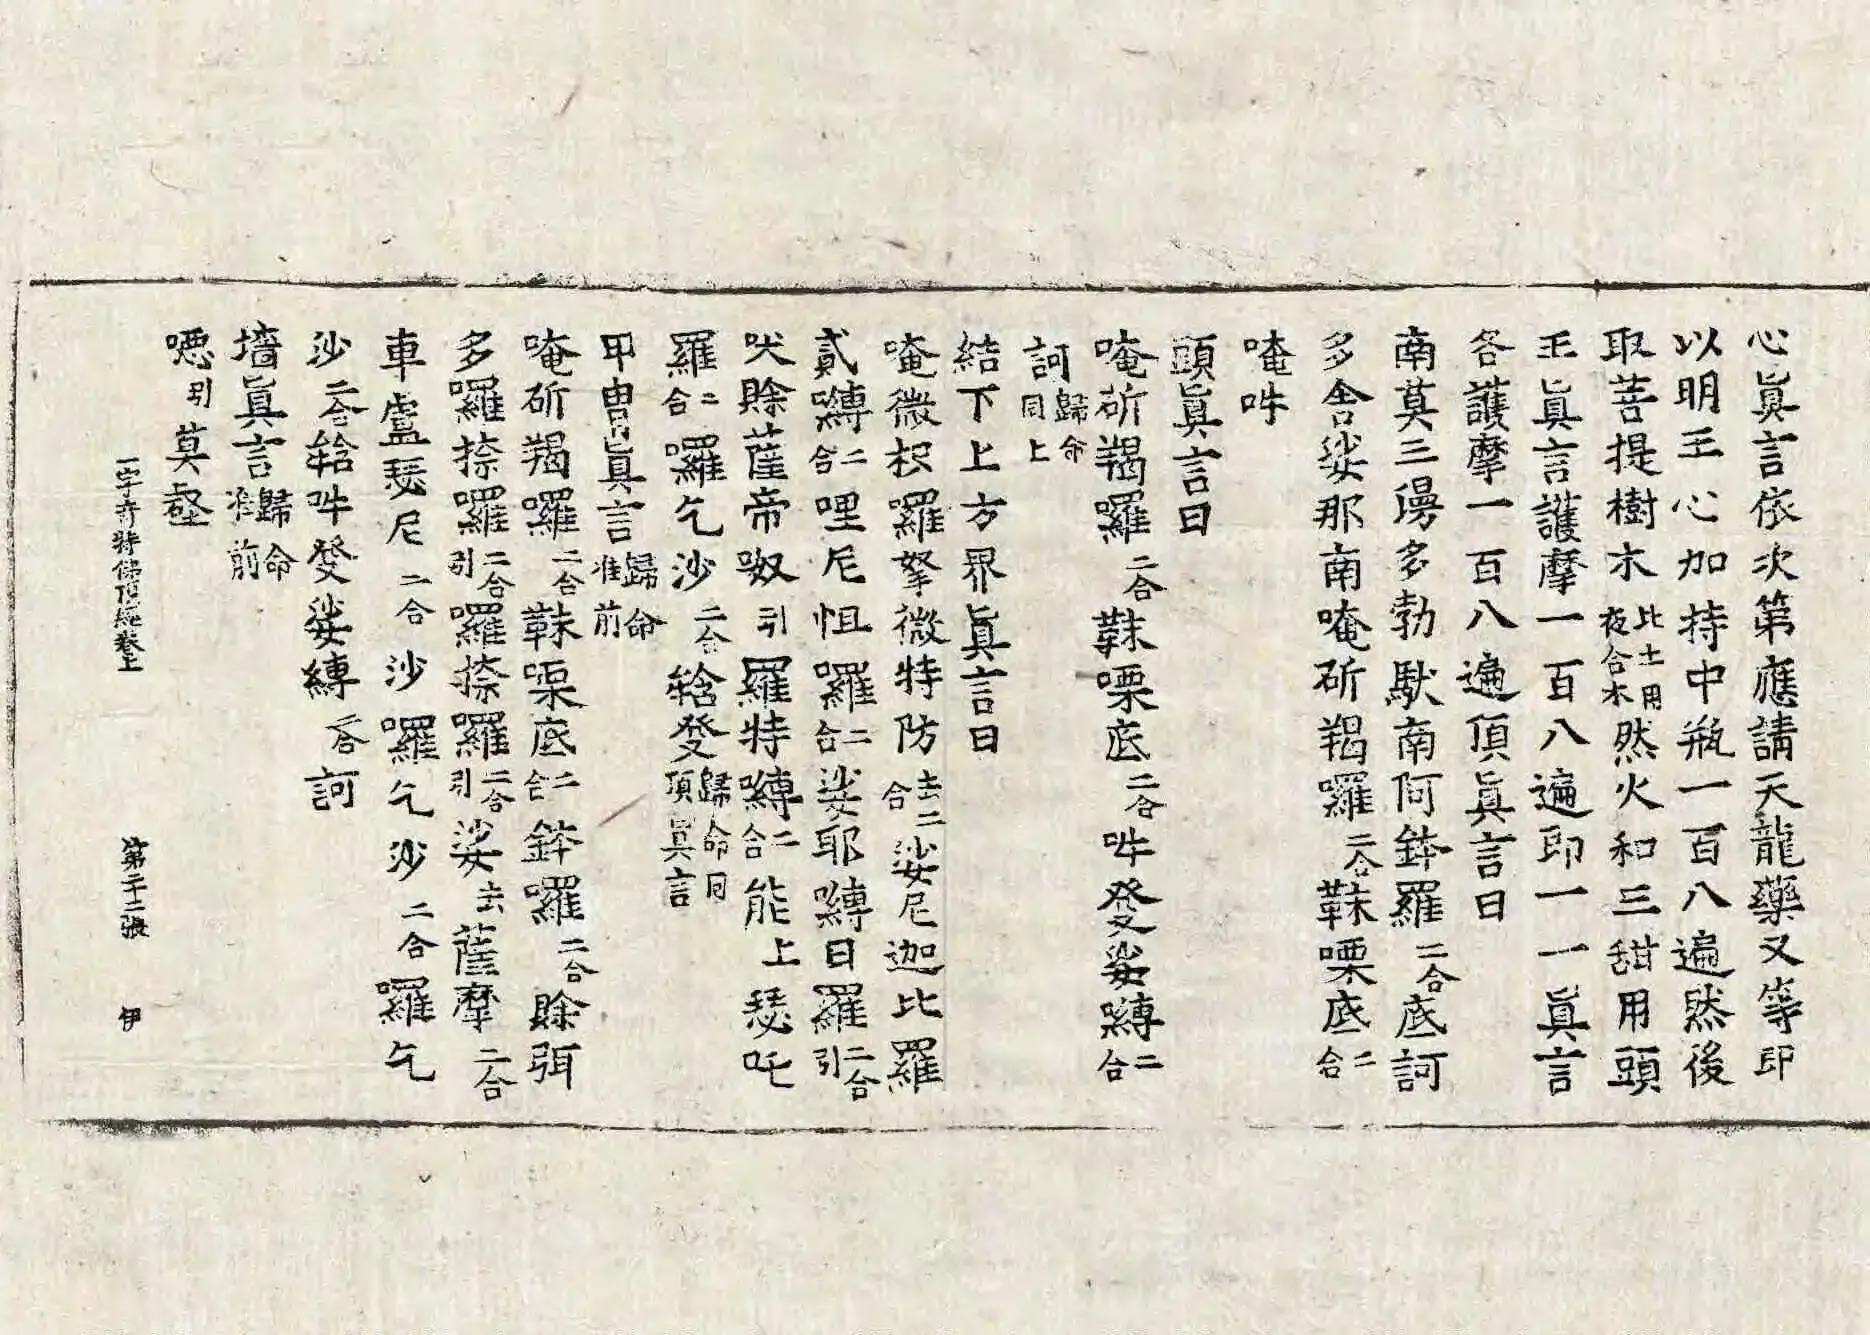 心眞言依次第應請天龍藥叉等印
以明王心加持中瓶一百八遍然後
取菩提樹木此土用夜合木然火和三甜用頭
王眞言護摩一百八遍即一一眞言
各護摩一百八遍頂眞言曰
南莫三曼多勃馱南阿鉢羅二合底訶
多舍娑那南唵斫羯囉二合韈嘌底二合
唵吽
頭眞言曰
唵斫羯囉二合韈嘌底二合吽發娑嚩二合
訶歸命同上
結下上方界眞言曰
唵微枳囉拏微特防去二合娑尼迦比羅
貳嚩二合哩尼怛囉二合娑耶嚩日羅二合引
吠賒薩帝奴引羅特嚩二合能上瑟吒
羅二合囉乞沙二合𤙖發歸命同頂眞言
甲冑眞言歸命准前
唵斫羯囉二合韈嘌底二合鉢囉二合賒弭
多囉捺囉二合引囉捺囉二合引娑去薩摩二合
車盧瑟尼二合沙囉乞沙二合囉乞
沙二合𤙖吽發娑縛二合訶
墻眞言歸命准前
噁引莫壑
一字奇特佛頂經卷上 第二十二張 伊